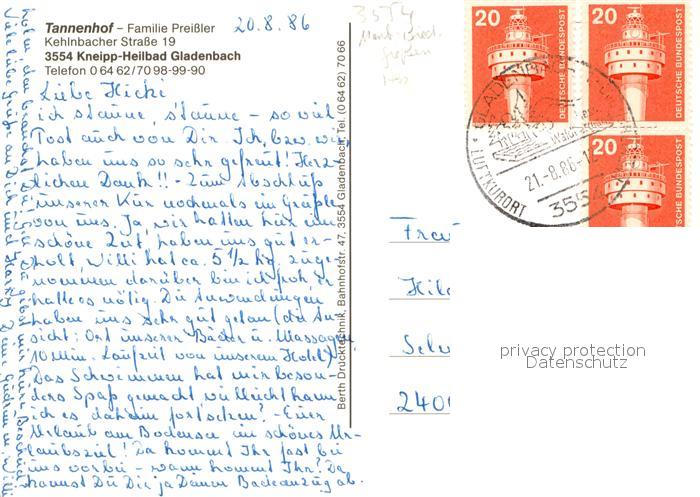 Tannenhof – Familie Preißler
Kehlnbacher Straße 19
3554 Kneipp-Heilbad Gladenbach
Telefon 0 64 62/70 98-99-90
20.8.86
3554
Liebe Hicki
ich staune, staune – so viel
Post auch von Dir. Ich, bzw. wir,
haben uns so sehr gefreut! Herz-
lichen Dank!! – Zum Abschluß
unserer Kur nochmals ein Grüßle
von uns. Ja, wir hatten hier eine
schöne Zeit, haben uns gut er-
holt, Willi hat ca. 5 1/2 kg. zuge-
nommen, darüber bin ich froh, er
hatte es nötig. Die Anwendungen
haben uns sehr gut getan (die An-
sicht: Ort unserer Bäder u. Massagen
10 Min. Laufzeit von unserem Hotel)
Das Schwimmen hat mir beson-
ders Spaß gemacht, vielleicht kann
ich es daheim fortsetzen? – Euer
Urlaub am Bodensee ein schönes Ur-
laubsziel! Da kommt Ihr fast bei
uns vorbei – wann kommt Ihr? Da
kannst Du Dir ja Deinen Badeanzug ab-
holen, den brauchst Du
Viele liebe Grüße an Dich und Harry
Berth Drucktechnik, Bahnhofstr. 47, 3554 Gladenbach, Tel. (0 64 62) 70 66
20
DEUTSCHE BUNDESPOST
20
DEUTSCHE BUNDESPOST
20
DEUTSCHE BUNDESPOST
GLADENBACH
LUFTKURORT
21.-8.86-12
3554
Frau
Hil
2400
privacy protection
Datenschutz